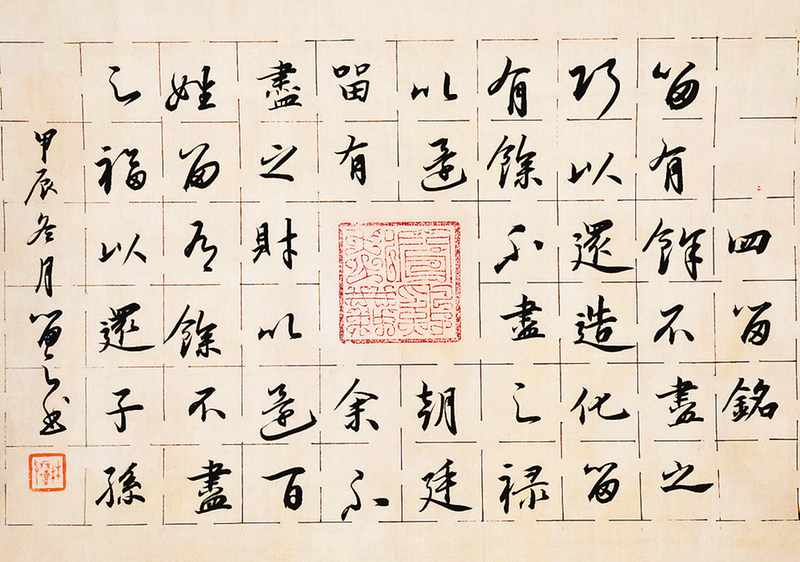 四留銘
留有餘不盡之
巧以還造化留
有餘不盡之禄
以還朝廷
留有余不
盡之財以還百
姓留有餘不盡
之福以還子孫
甲辰冬月